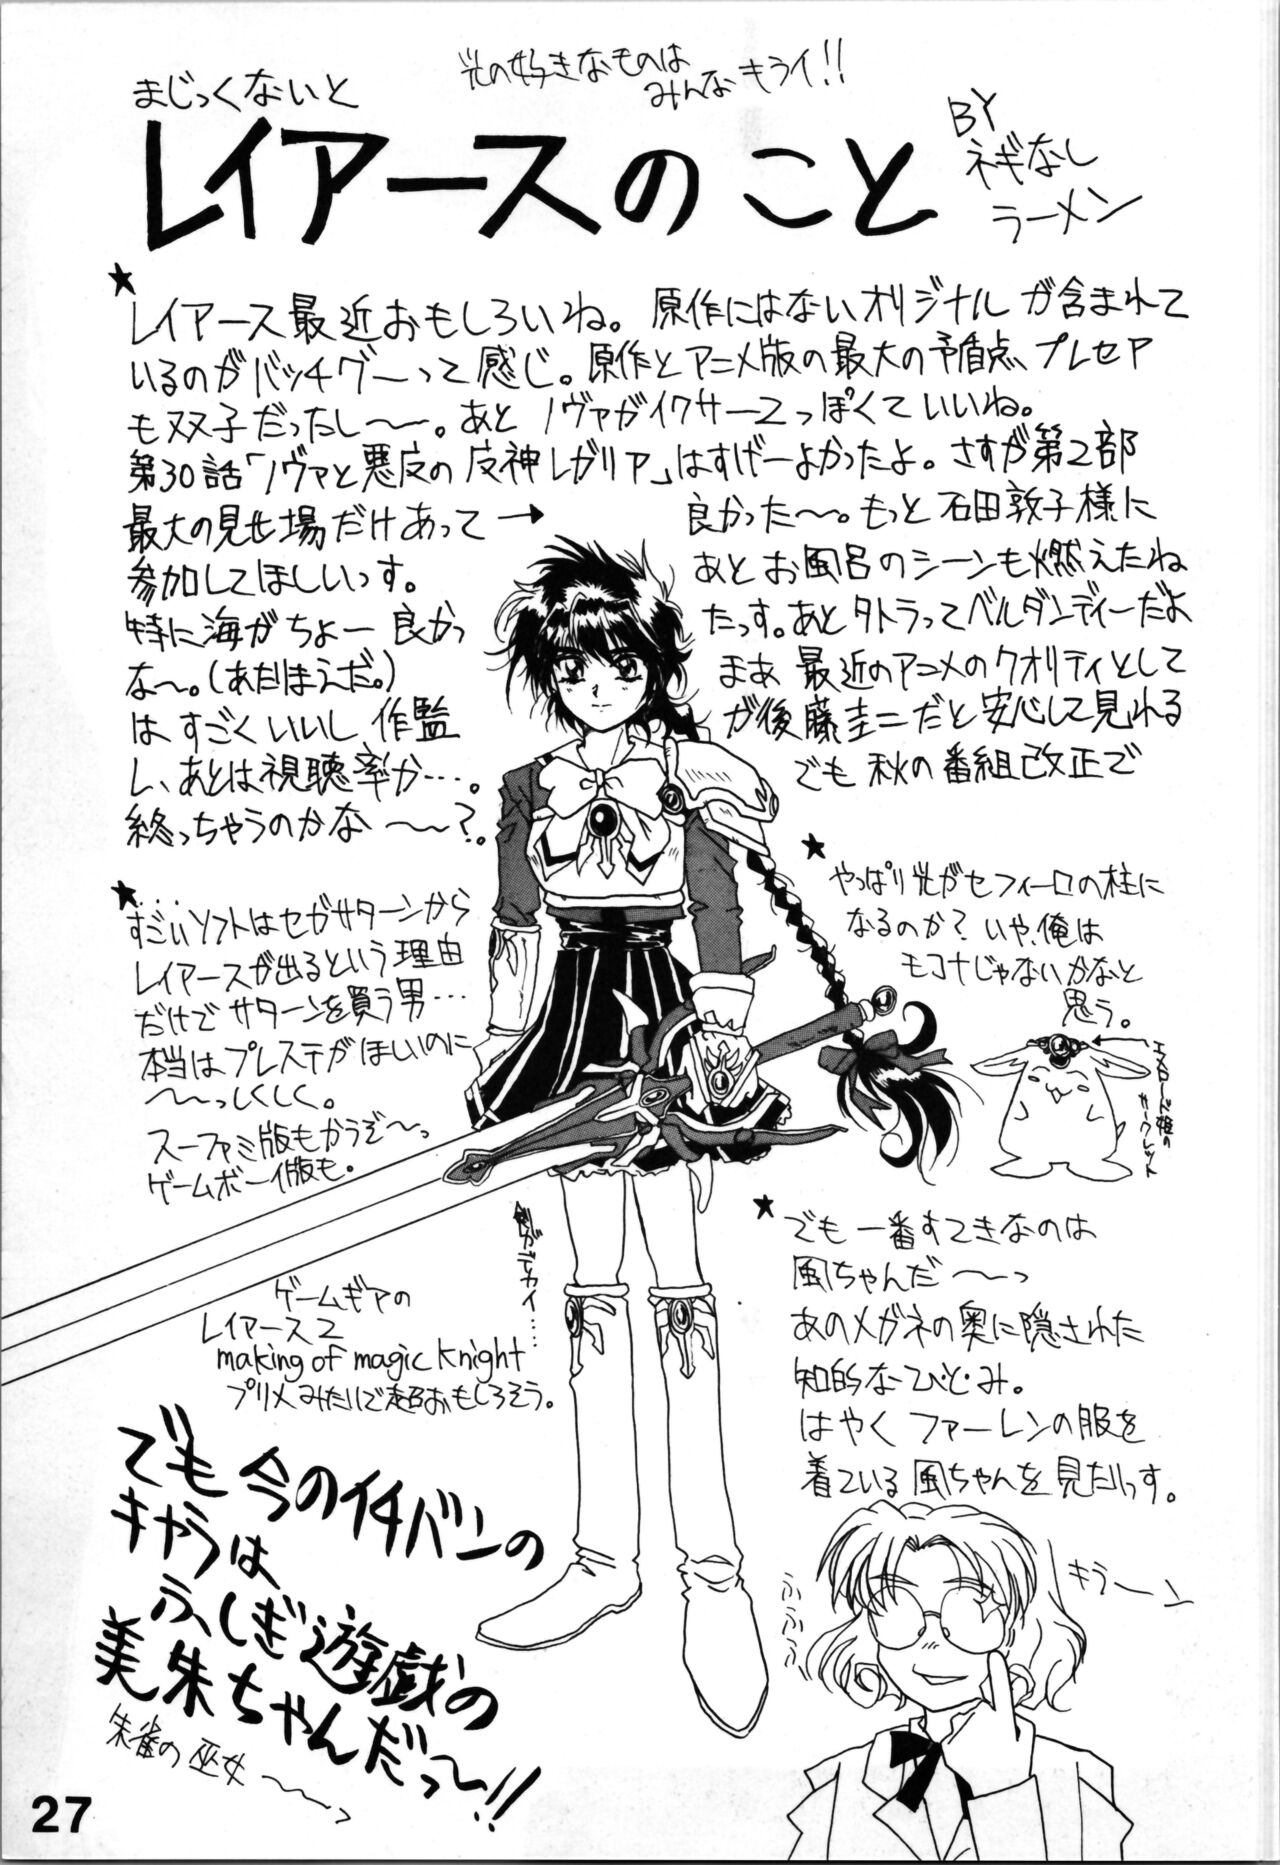 光の好きなものは
みんなキライ!!
まじっくないと
レイアースのこと
BY
ネギなし
ラーメン
★
レイアース最近おもしろいね。原作にはないオリジナルが含まれて
いるのがバッチグ〜って感じ。原作とアニメ版の最大の矛盾点、プレセア
も双子だったし〜〜。あとノヴァがイクサー2っぽくていいね。
第30話「ノヴァと悪夜の 魔神レガリア」はすげーよかったよ。さすが第2部
最大の見せ場だけあって→ 良かった〜〜。もっと石田敦子様に
参加してほしいっす。 あとお風呂のシーンも燃えたね
特に海がちょー良かっ たっす。あとタトラってベルダンディーだよ
な〜。(あたりまえだ。) まあ最近のアニメのクオリティとして
は、すごくいいし作監 が後藤圭二だと安心して見れる
し、あとは視聴率か…。 でも秋の番組改正で
終っちゃうのかな〜〜?。
★
すごいソフトはセガサターンから
レイアースが出るという理由
だけでサターンを買う男…
本当はプレステがほしいのに
〜〜っしくしく。
スーファミ版もかうぞ〜っ
ゲームボーイ版も。
★
やっぱり光がセフィーロの柱に
なるのか?いや、俺は
モコナじゃないかなと
思う。
エメロード姫の
サークレット
剣がデカイ……
ゲームギアの
レイアース2
making of magic knight
プリメみたいで超おもしろそう。
★
でも一番すてきなのは
風ちゃんだ〜〜っ
あのメガネの奥に隠された
知的なひとみ。
はやくファーレンの服を
着ている風ちゃんを見たいっす。
キラーン
ふふふっ
でも今のイチバンの
キャラは
ふしぎ遊戯の
美朱ちゃんだっ〜!!
朱雀の巫女〜〜っ
27